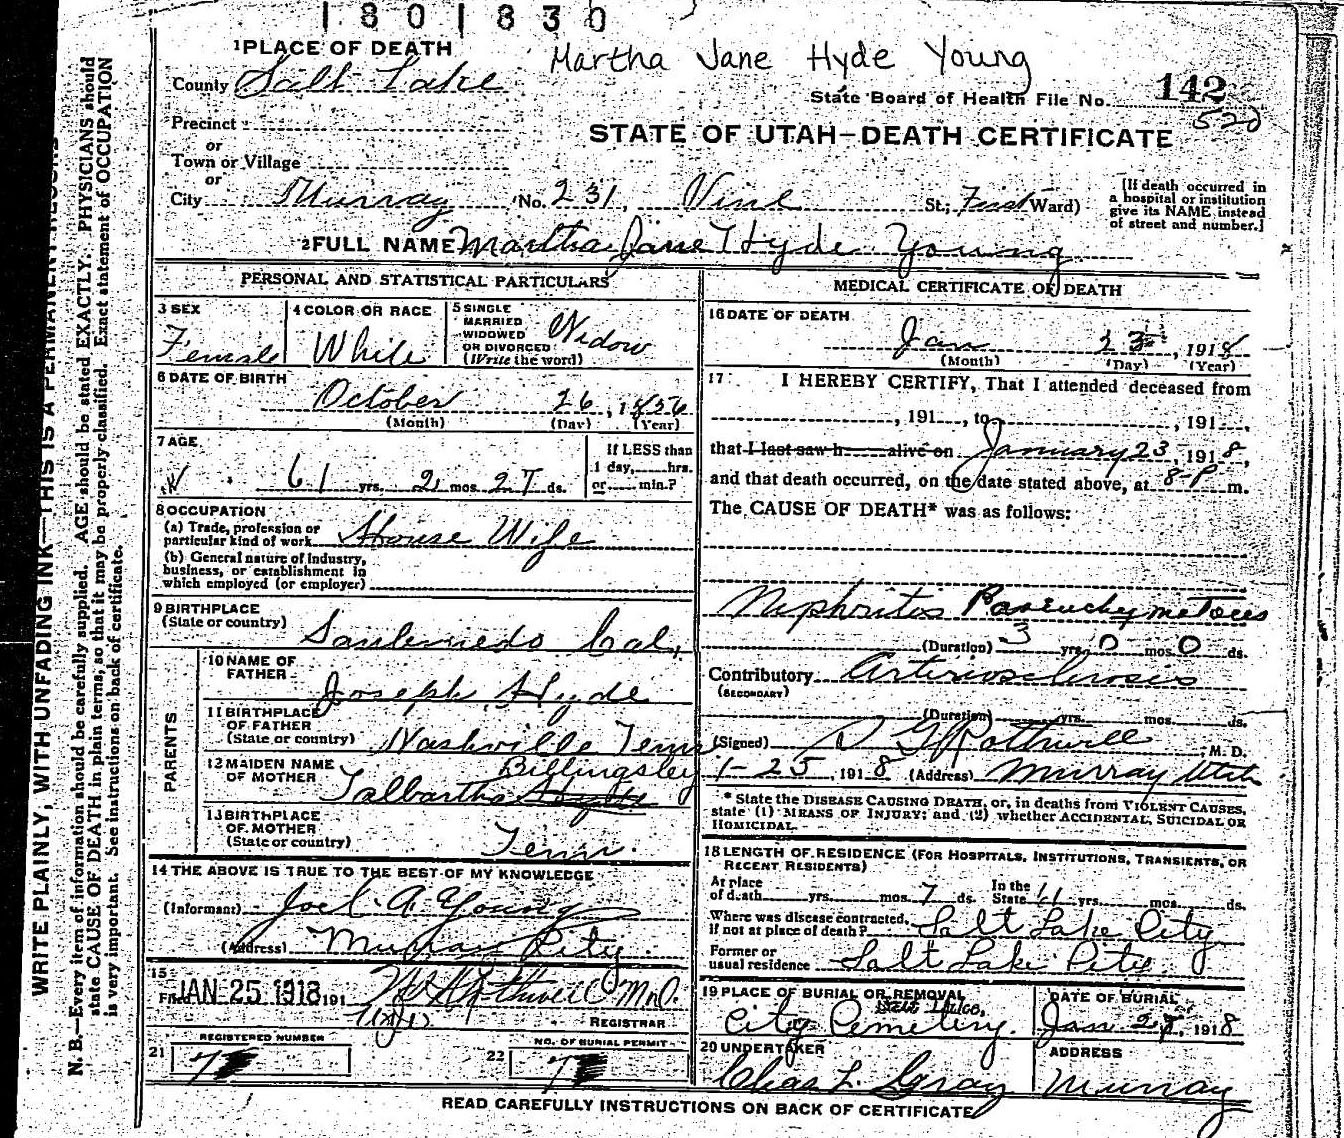 1801830
Martha Jane Hyde Young
1 PLACE OF DEATH
County Salt Lake
State Board of Health File No. 142
520
Precinct
or
STATE OF UTAH—DEATH CERTIFICATE
Town or Village
or
City Murray No. 231, Vine St.; First Ward)
[If death occurred in a hospital or institution give its NAME instead of street and number.]
2 FULL NAME Martha Jane Hyde Young
PERSONAL AND STATISTICAL PARTICULARS
3 SEX
Female
4 COLOR OR RACE
White
5 SINGLE
MARRIED
WIDOWED
OR DIVORCED
(Write the word)
Widow
6 DATE OF BIRTH
October 26, 1856
(Month) (Day) (Year)
7 AGE
61 yrs. 2 mos. 27 ds.
If LESS than
1 day, hrs.
or min.?
8 OCCUPATION
(a) Trade, profession or
particular kind of work House Wife
(b) General nature of industry,
business, or establishment in
which employed (or employer)
9 BIRTHPLACE
(State or country)
Cal.
PARENTS
10 NAME OF
FATHER
Joseph Hyde
11 BIRTHPLACE
OF FATHER
(State or country) Nashville Tenn
12 MAIDEN NAME
OF MOTHER
Billingsley
Talbartha
13 BIRTHPLACE
OF MOTHER
(State or country)
Tenn.
14 THE ABOVE IS TRUE TO THE BEST OF MY KNOWLEDGE
(Informant) Joel A Young
(Address) Murray City
15
JAN 25 1918 191
REGISTRAR
REGISTERED NUMBER
21 7
NO. OF BURIAL PERMIT
22 7
MEDICAL CERTIFICATE OF DEATH
16 DATE OF DEATH
Jan 23, 1918
(Month) (Day) (Year)
17 I HEREBY CERTIFY, That I attended deceased from
, 191 , to , 191 ,
that I last saw h alive on January 23, 1918,
and that death occurred, on the date stated above, at 8-P m.
The CAUSE OF DEATH* was as follows:
Nephritis
(Duration) 3 yrs. 0 mos. 0 ds.
Contributory Arteriosclerosis
(SECONDARY)
(Duration) yrs. mos. ds.
(Signed) D G Rothwell M. D.
1-25, 1918 (Address) Murray Utah
* State the DISEASE CAUSING DEATH, or, in deaths from VIOLENT CAUSES,
state (1) MEANS OF INJURY; and (2) whether ACCIDENTAL, SUICIDAL OR
HOMICIDAL.
18 LENGTH OF RESIDENCE (FOR HOSPITALS, INSTITUTIONS, TRANSIENTS, OR
RECENT RESIDENTS)
At place
of death yrs. mos. 7 ds.
In the
State 11 yrs. mos. ds.
Where was disease contracted,
if not at place of death? Salt Lake City
Former or
usual residence Salt Lake City
19 PLACE OF BURIAL OR REMOVAL
City Cemetery.
DATE OF BURIAL
Jan 27, 1918
20 UNDERTAKER
Chas L. Gray
ADDRESS
Murray
READ CAREFULLY INSTRUCTIONS ON BACK OF CERTIFICATE
WRITE PLAINLY, WITH UNFADING INK—THIS IS A PERMANENT RECORD
N. B.—Every item of information should be carefully supplied. AGE should be stated EXACTLY. PHYSICIANS should
state CAUSE OF DEATH in plain terms, so that it may be properly classified. Exact statement of OCCUPATION
is very important. See instructions on back of certificate.